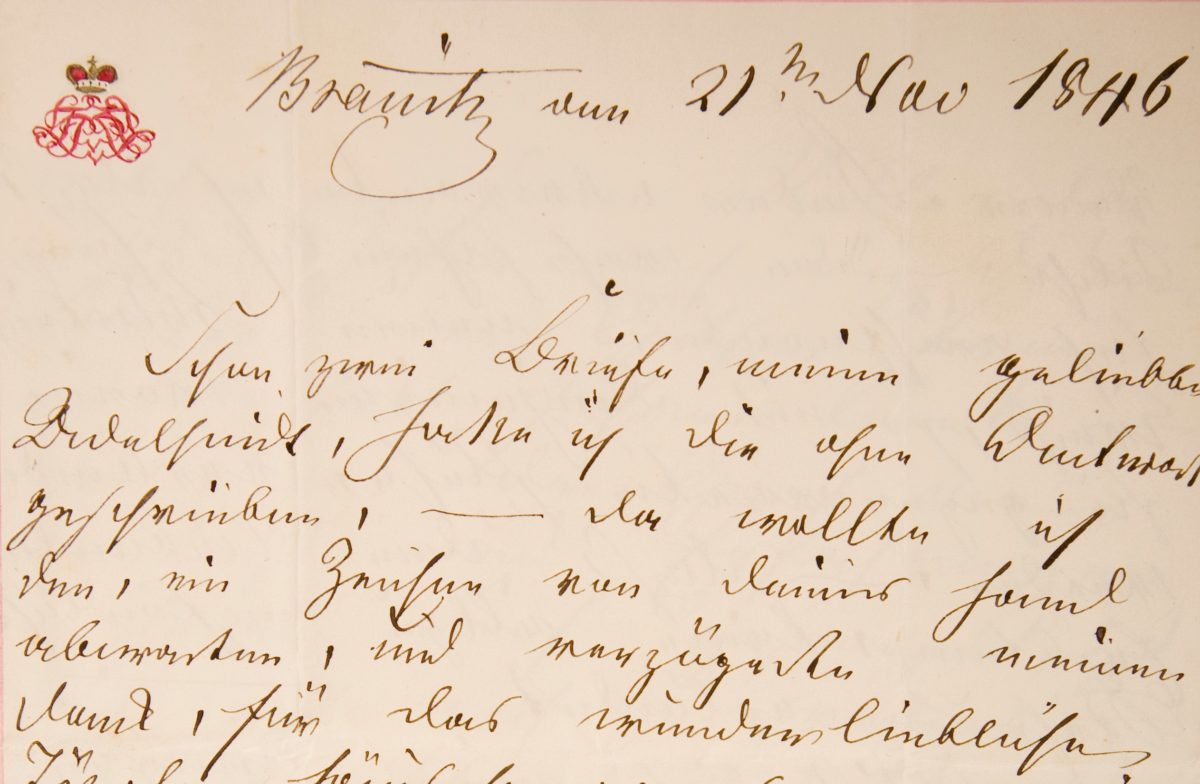 Branitz am 21ⁿ Nov 1846
Schon zwei Briefe, meine geliebte
Adelheid, hatte ich Dir ohne Antwort
geschrieben, — da wollte ich
den, ein Zeichen von Deiner Hand
abwarten, und verzögerte meinen
Dank, für das wunderlieblichste